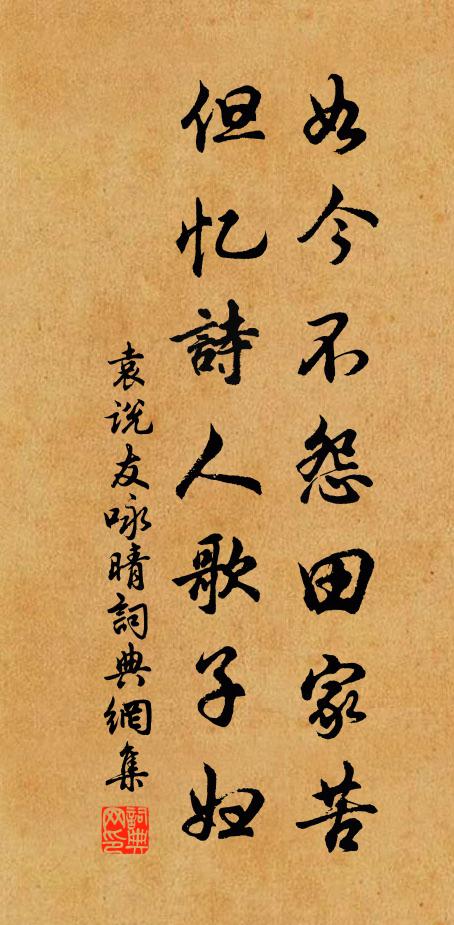 如今不怨田家苦
但忆詩人歌子妇
袁说友咏晴詞典網集
詞典网印